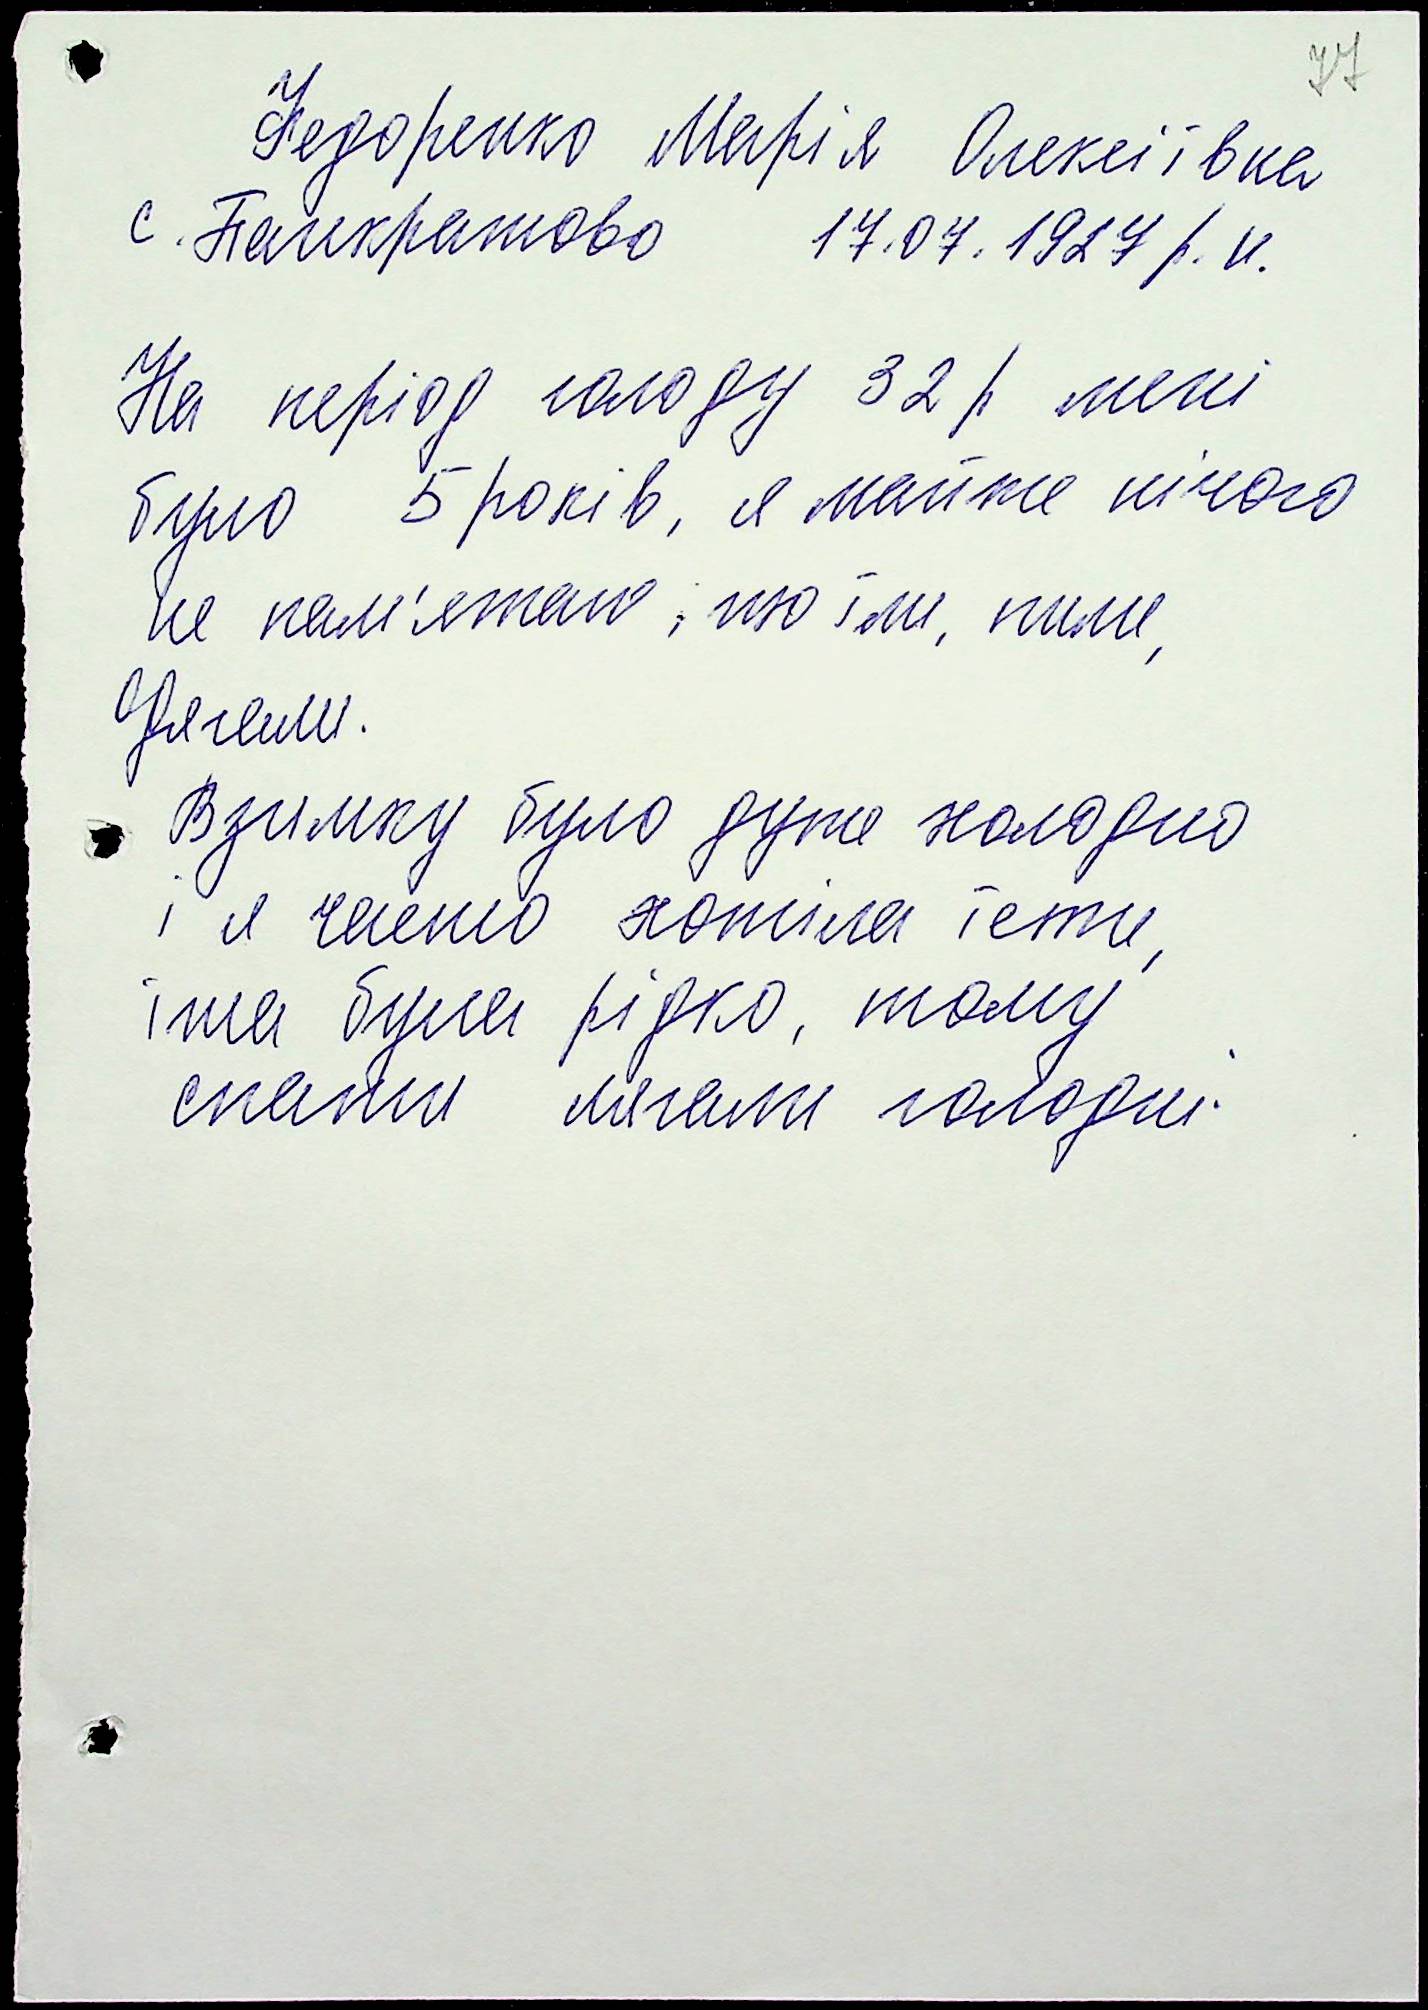 77
Федоренко Марія Олексіївна
с. Панкратово 17.07.1927 р. н.
На період голоду 32 р мені
було 5 років, я майже нічого
не пам'ятаю, що їли, пили,
одягали.
Взимку було дуже холодно
і я часто хотіла їсти,
їжа була рідко, тому
спати лягали голодні.